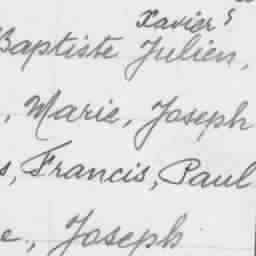 Xavier
Baptiste Julien,
, Marie, Joseph
s, Francis, Paul
e, Joseph